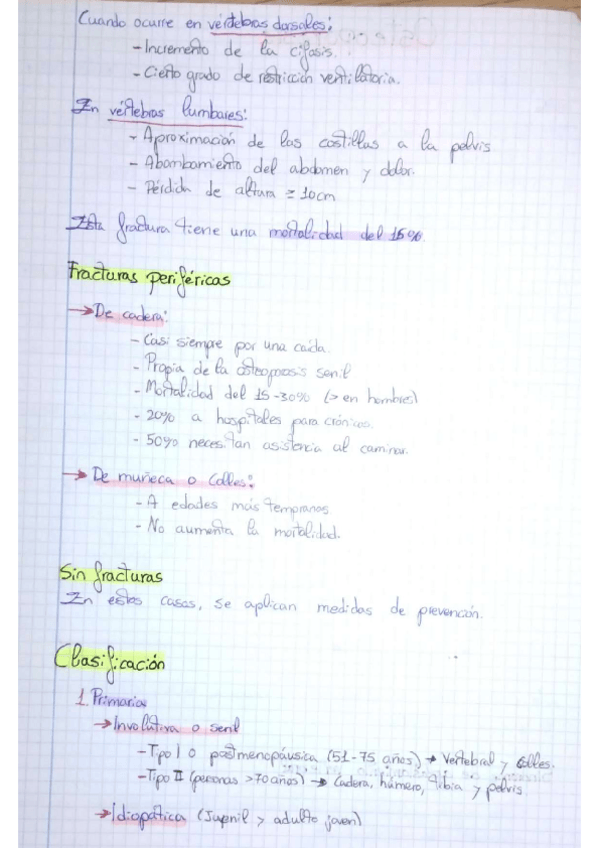 Cuando ocurre en vértebras dorsales:
- Incremento de la cifosis.
- Cierto grado de restricción ventilatoria.
En vértebras lumbares:
- Aproximación de las costillas a la pelvis
- Abombamiento del abdomen y dolor.
- Pérdida de altura ≥ 10cm
Esta fractura tiene una mortalidad del 15%.
Fracturas periféricas
→ De cadera:
- Casi siempre por una caída.
- Propia de la osteoporosis senil
- Mortalidad del 15-30% (> en hombres)
- 20% a hospitales para crónicos.
- 50% necesitan asistencia al caminar.
→ De muñeca o Colles:
- A edades más tempranas
- No aumenta la mortalidad.
Sin fracturas
En estos casos, se aplican medidas de prevención.
Clasificación
1. Primarias
→ Involutiva o senil
- Tipo I o postmenopáusica (51-75 años) → Vertebral y Colles.
- Tipo II (personas >70 años) → Cadera, húmero, tibia y pelvis
→ Idiopática (Juvenil y adulto joven)